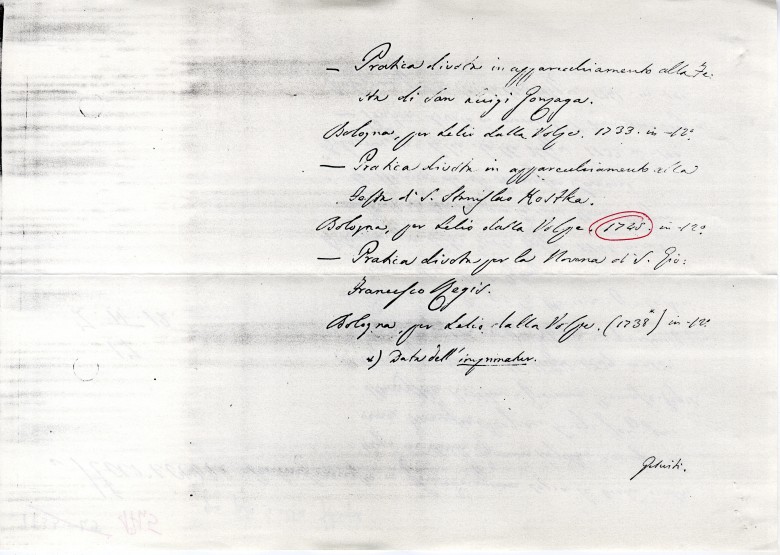 — Pratica divota in apparecchiamento alla Fe:
sta di San Luigi Gonzaga.
Bologna, per Lelio dalla Volpe. 1733. in-12º
— Pratica divota in apparecchiamento alla
Festa di S. Stanislao Kostka.
Bologna, per Lelio dalla Volpe. 1725. in-12º
— Pratica divota per la Novena di S. Gio:
Francesco Regis.
Bologna, per Lelio dalla Volpe. (1738*) in-12º
*) Data dell'imprimatur.
Gesuiti.